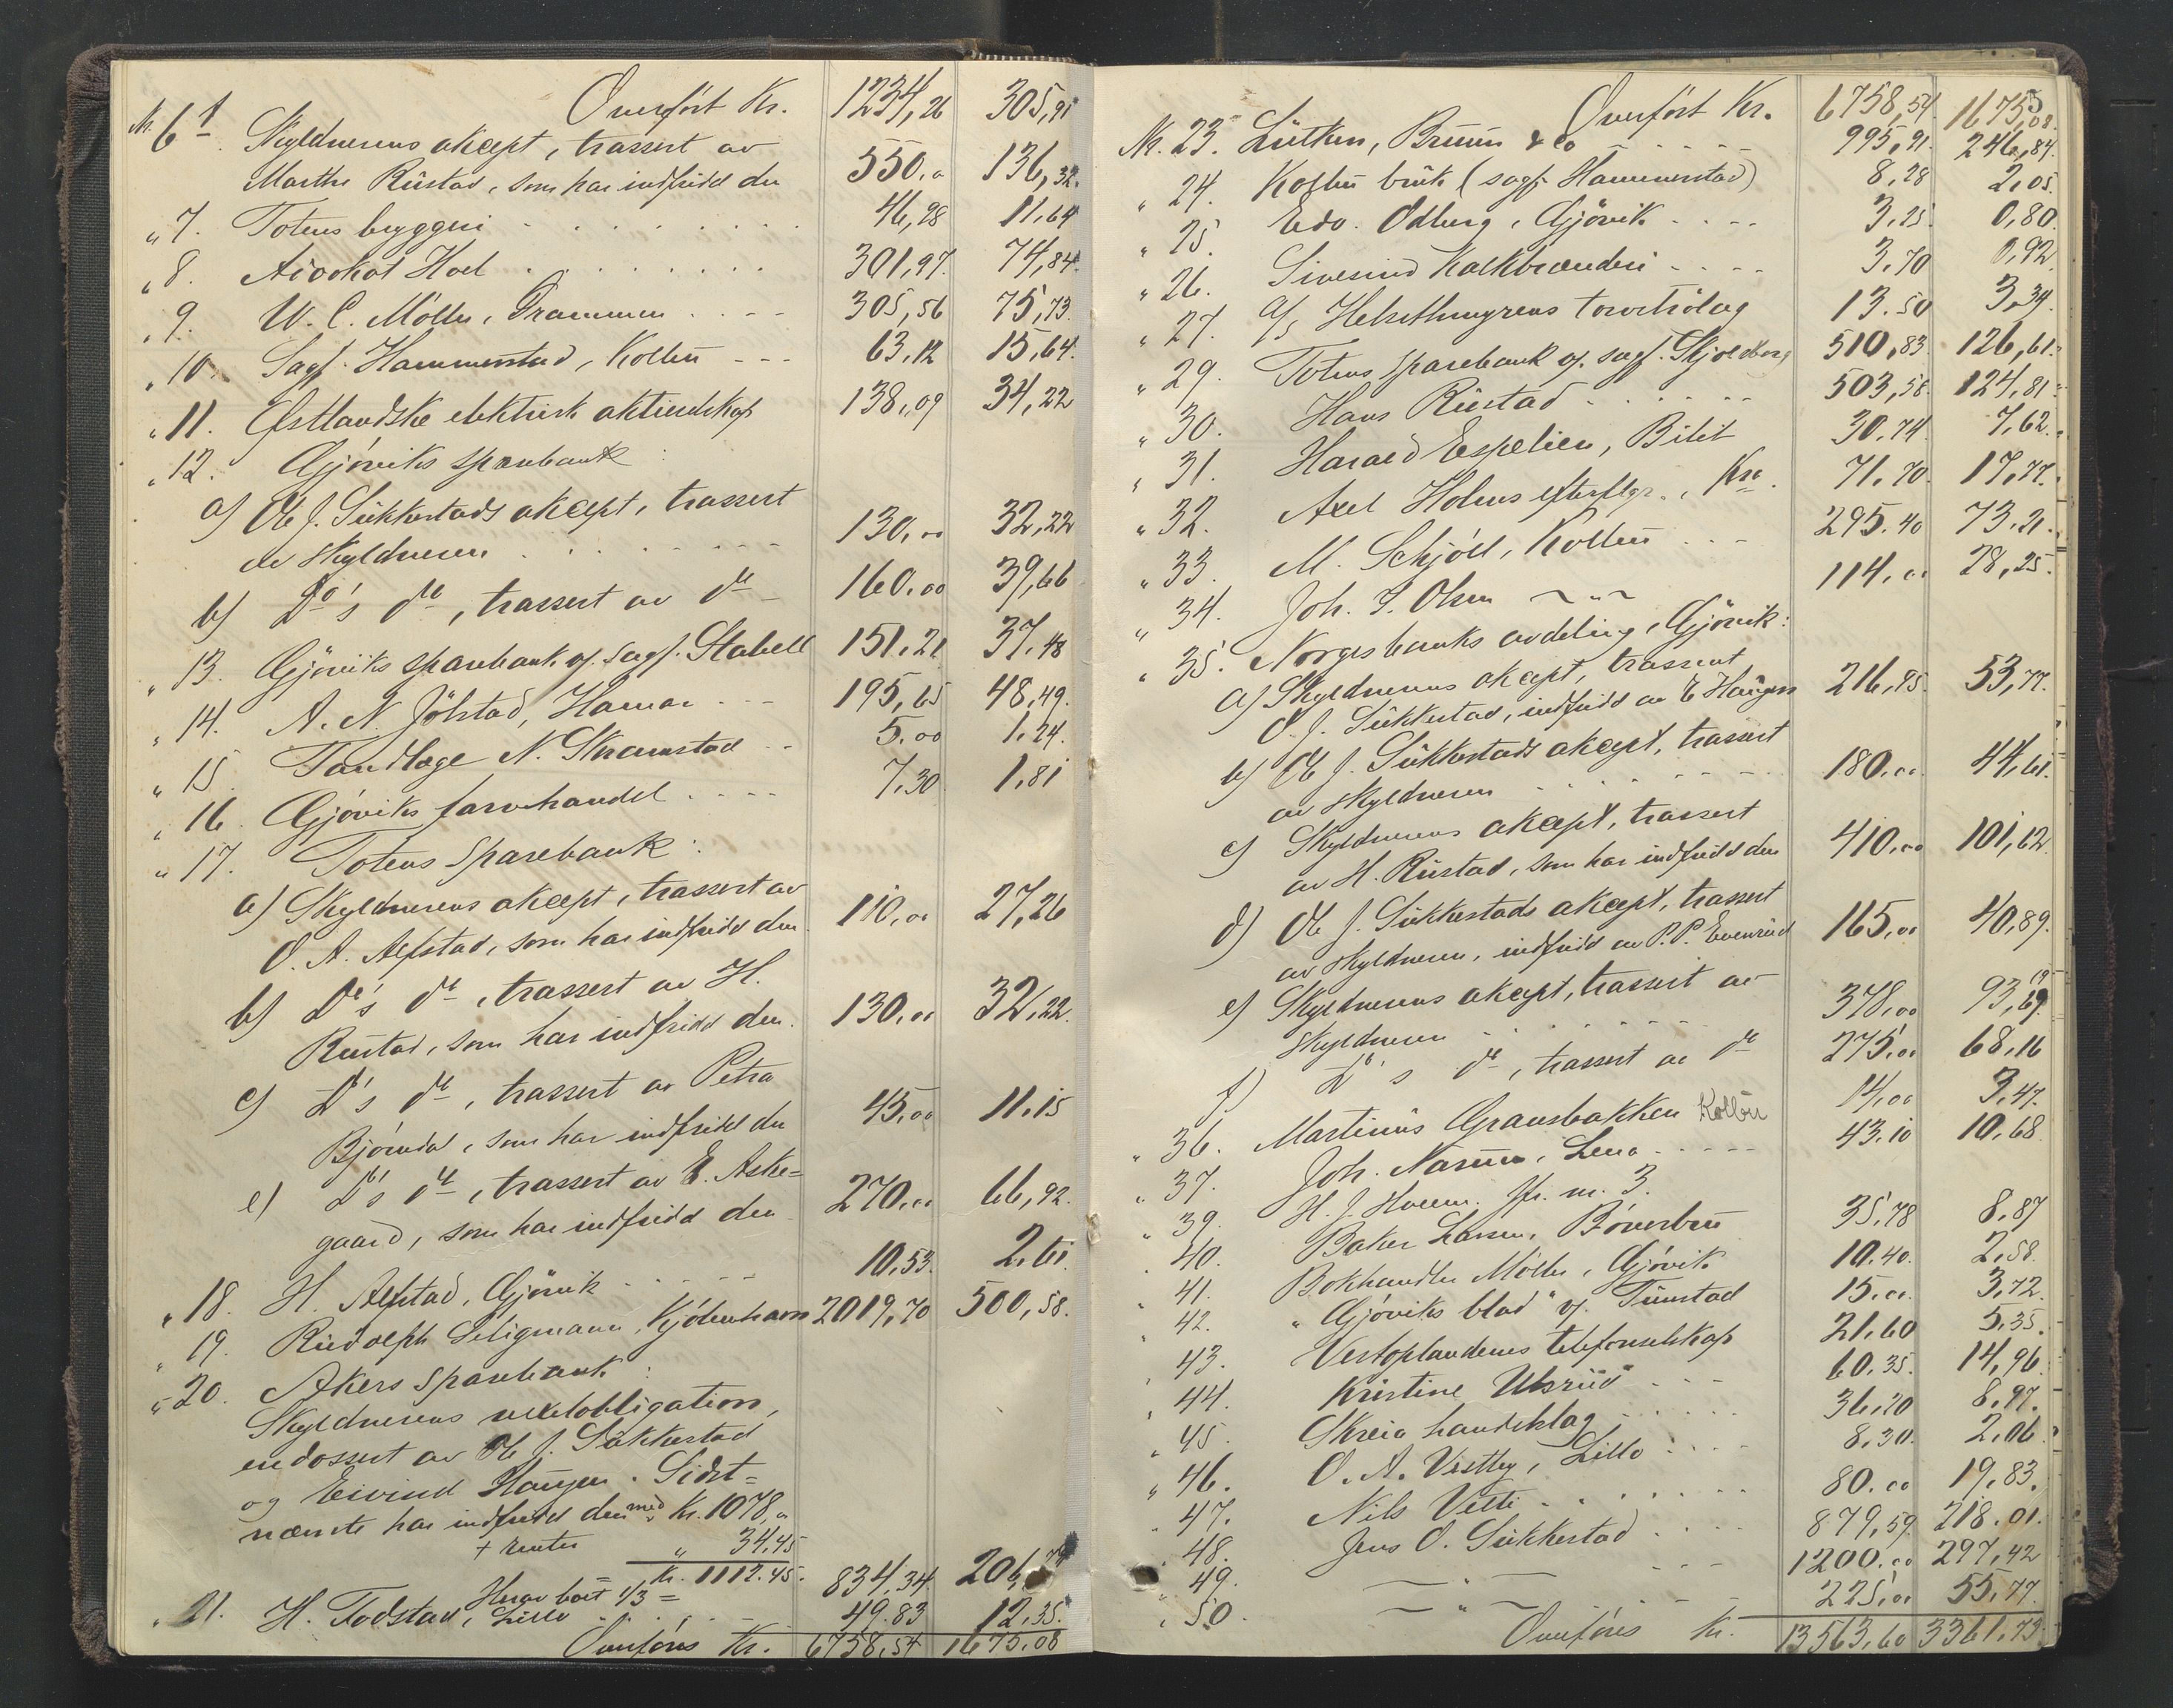 Overført Kr. 1234,26 305,91
Nr. 6 f Skyldnerens aksept, trassert av
Marthe Rustad, som har indfridd den 550,00 136,32.
" 7. Totens bryggeri . . . . . 46,98 11,64
" 8. Advokat Hoel . . . . . 301,97. 74,84.
" 9. W. C. Möller, Drammen . . . . 305,56 75,73.
" 10. Sagf. Hammerstad, Kolbu - - - 63,12 15,64.
" 11. Østlandske elektrisk aktieselskap 138,09 34,22
" 12. Gjøviks sparebank :
a) Ole J. Sukkestads aksept, trassert
av skyldneren . . . . . 130,00 32,22
b) Do's do, trassert av do 160,00 39,66
" 13. Gjøviks sparebank v. sagf. Stabell 151,21 37,48
" 14. A. N. Jölstad, Hamar - - - 195,65 48,49.
" 15. Tandlæge N. Skramstad - - 5,00 1,24.
" 16. Gjøviks farvehandel . . . . 7,30 1,81
" 17. Totens Sparebank :
a) Skyldnerens aksept, trassert av
O. A. Alfstad, som har indfridd den. 110,00 27,26
b) Do's do, trassert av H.
Rustad, som har indfridd den. 130,00 32,22.
c) Do's do, trassert av Petra
Bjørndal, som har indfridd den 45,00 11,15
e) Do's do, trassert av E. Aske=
gaard, som har indfridd den 270,00 66,92.
" 18. H. Alfstad, Gjøvik - - - - - 10,53. 2,61.
" 19. Rudolph Seligmann, Kjøbenhavn 2019,70 500,58.
" 20. Akers Sparebank :
Skyldnerens vexelobligation,
endossert av Ole J. Sukkestad
og Eivind Haugen. Sidst=
nævnte har indfridd den med Kr. 1078,00
+ renter " 34,45
Kr. 1112.45.
Herav bort 1/3 = 834,34. 206,79
" 21. H. Fodstad, Lillo . . . . 49.83 12,35.
Overføres Kr. 6758,54 1675,08
Overført Kr. 6758,54. 1675,08.
Nr. 23. Lütken, Bruun & Co - - - - - 995,91. 246,84.
" 24. Kolbu bruk (sagf. Hammerstad) 8,28 2,05.
" 25. Edv. Odberg, Gjøvik - - - - 3,25. 0,80.
" 26. Sivesind Kalkbrænderi - - - - 3,70 0,92.
" 27. A/S Helsethmyrens torvstrølag 13.50 3,34.
" 29. Totens Sparebank v. sagf. Skjoldborg 510,83. 126,61.
" 30. Hans Rustad . . . . . 503,58. 124,81.
" 31. Harald Espelien, Bilit 30,74. 7,62.
" 32. Axel Holms efterflgr., Kra. 71,70. 17,77.
" 33. M. Schjöll, Kolbu - - - 295.40 73,21.
" 34. Joh. J. Olsen — " — 114,00 28,25.
" 35. Norges banks avdeling, Gjøvik:
a) Skyldnerens aksept, trassert,
O. J. Sukkestad, indfridd av E Haugen 216,95. 53,77.
b) Ole J. Sukkestads aksept, trassert
av skyldneren . . . . . 180,00 44,61.
c) Skyldnerens aksept, trassert
av H. Rustad, som har indfridd den 410,00 101,62.
d) Ole J. Sukkestads aksept, trassert
av skyldneren, indfridd av P. P. Evensrud 165,00 40,89.
e) Skyldnerens aksept, trassert av
skyldneren . . . . . 378,00 93,69.
f) Do's do, trassert av do 275,00 68,16
" 36. Martinus Gransbakken Kolbu 14,00 3,47.
" 37. Joh. Narum, Lena - - - - - 43,10 10,68
" 39. H. J. Hveem. Jfr. nr. 3.
" 40. Baker Larsen, Bøverbru 35,78 8,87
" 41. Bokhandler Möller, Gjøvik 10.40. 2,58.
" 42. "Gjøviks blad" v. Tumstad 15,00 3,72.
" 43. Vestoplandenes telefonselskap 21,60 5,35.
" 44. Kristine Ulsrud - - - 60,35. 14,96.
" 45. Skreia handelslag . . . . 36,20 8,97.
" 46. O. A. Vestby, Lillo . . . . 8,30. 2,06
" 47. Nils Vetti . . . . . 80,00 19,83.
" 48. Jens O. Sukkestad . . . . 879,59. 218.01.
" 49. — " — - - - 1200,00 297,42
" 50. — " — - - 225,00 55,77.
Overføres Kr. 13563,60 3361,73